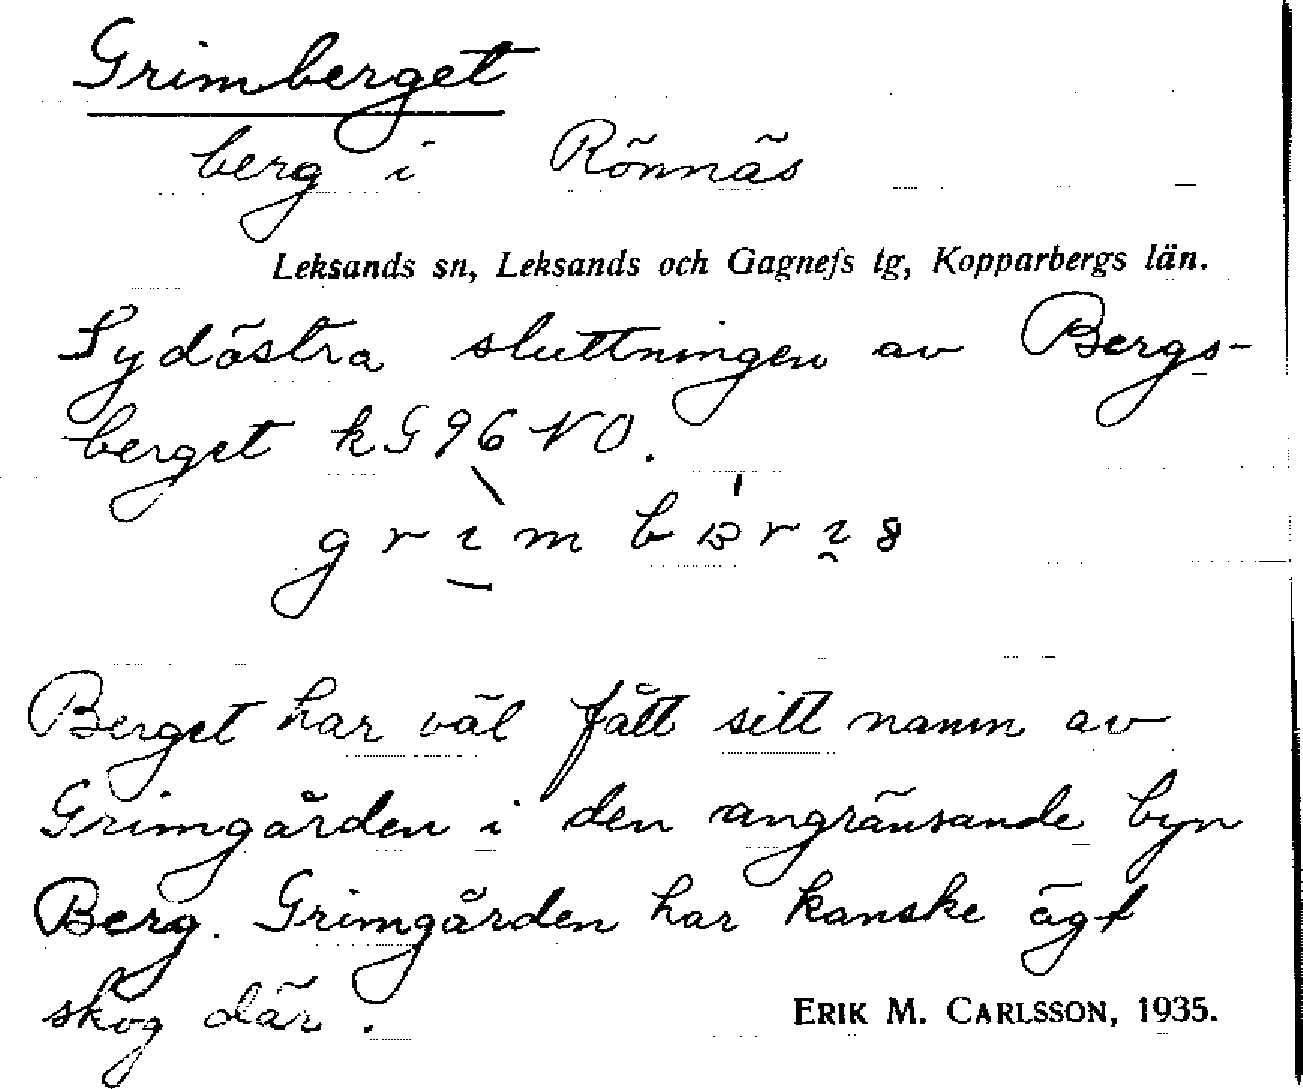 Grimberget
berg i Rönnäs
Leksands sn, Leksands och Gagnefs tg, Kopparbergs län.
Sydöstra sluttningen av Bergs-
berget kG96NO.
Berget har väl fått sitt namn av
Grimgården i den angränsande byn
Berg. Grimgården har kanske ägt
skog där.
ERIK M. CARLSSON, 1935.